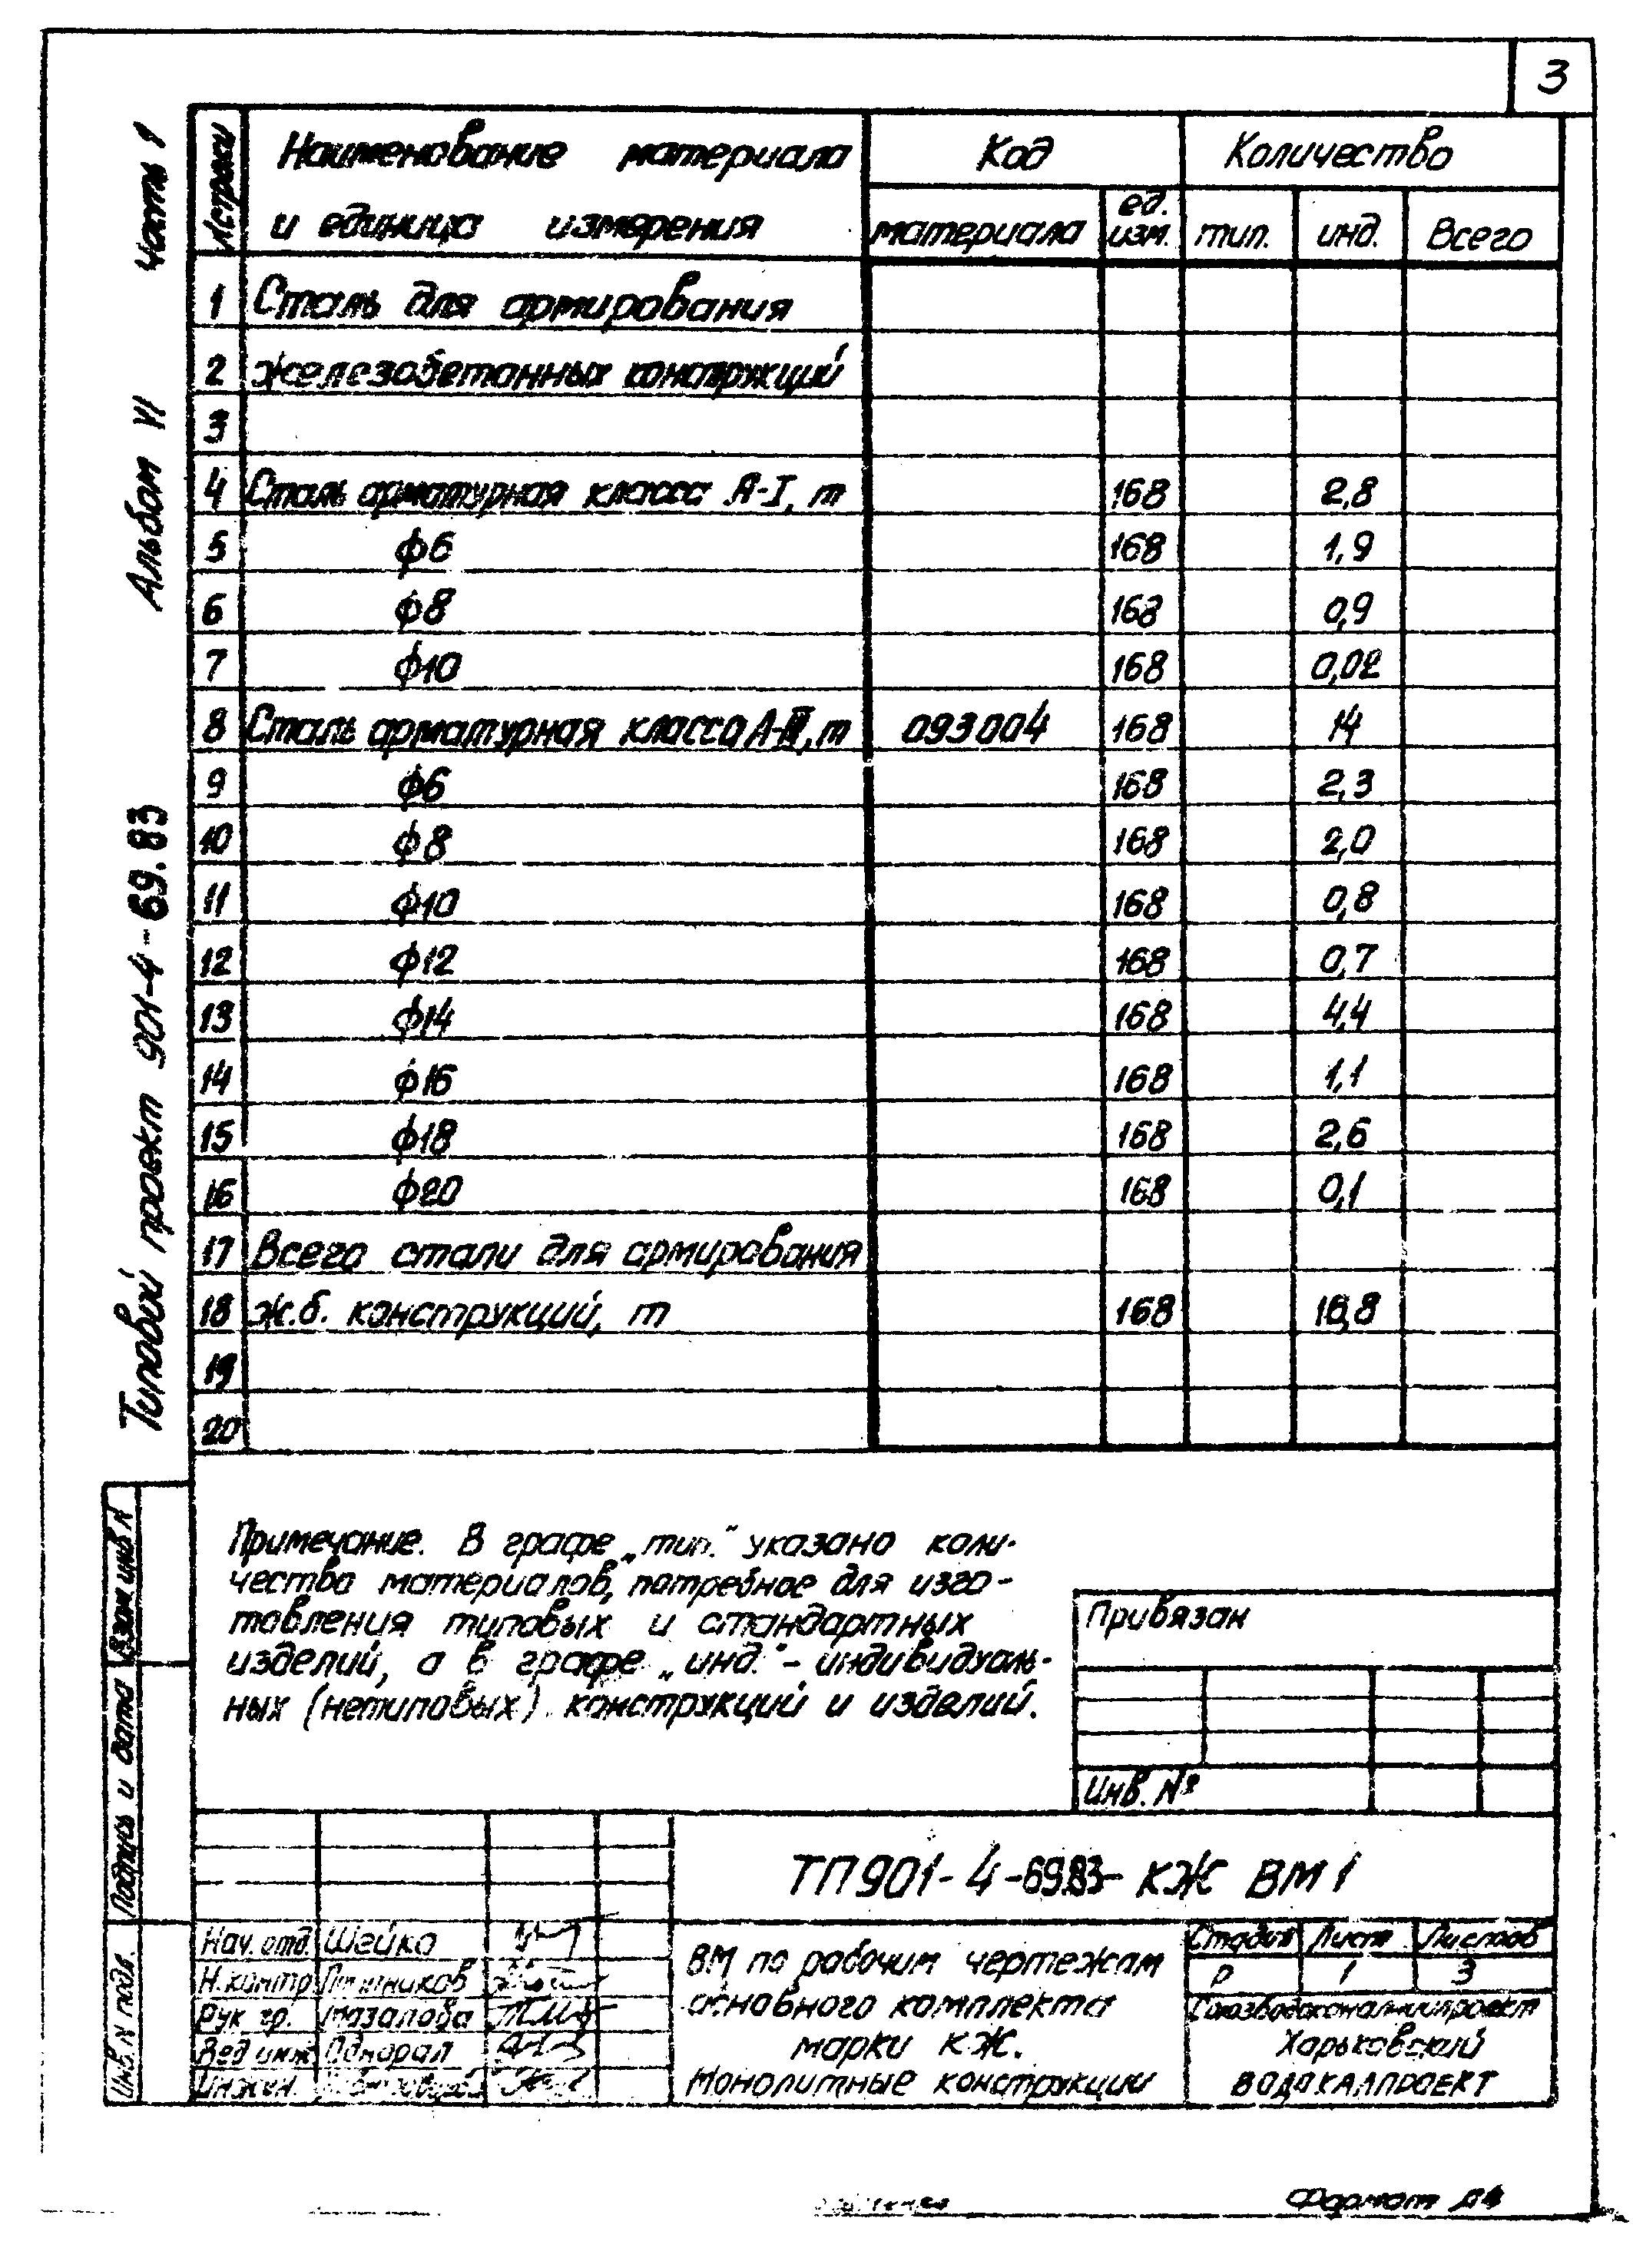 3
Типовой проект 901-4-69.83 Альбом VI Часть 1
№ строки Наименование материала и единица измерения Код Количество
материала ед. изм. тип. инд. Всего
1 Сталь для армирования
2 железобетонных конструкций
3
4 Сталь арматурная класса А-I, т 168 2,8
5 ф6 168 1,9
6 ф8 168 0,9
7 ф10 168 0,02
8 Сталь арматурная класса А-III, т 093004 168 14
9 ф6 168 2,3
10 ф8 168 2,0
11 ф10 168 0,8
12 ф12 168 0,7
13 ф14 168 4,4
14 ф16 168 1,1
15 ф18 168 2,6
16 ф20 168 0,1
17 Всего стали для армирования
18 ж.б. конструкций, т 168 16,8
19
20
Примечание. В графе „тип." указано коли-
чество материалов, потребное для изго-
товления типовых и стандартных
изделий, а в графе „инд." - индивидуаль-
ных (нетиповых) конструкций и изделий.
Привязан
Инв. №
Взам. инв. №
Подпись и дата
Инв. № подл.
ТП 901-4-69.83- КЖ ВМ 1
Нач. отд. Шейко
Н. контр.
Рук. гр. Мазалова
Вед. инж. Однорал
Инжен.
ВМ по рабочим чертежам
основного комплекта
марки КЖ.
Монолитные конструкции
Стадия Лист Листов
Р 1 3
Союзводоканалниипроект
Харьковский
ВОДОКАНАЛПРОЕКТ
Формат А4